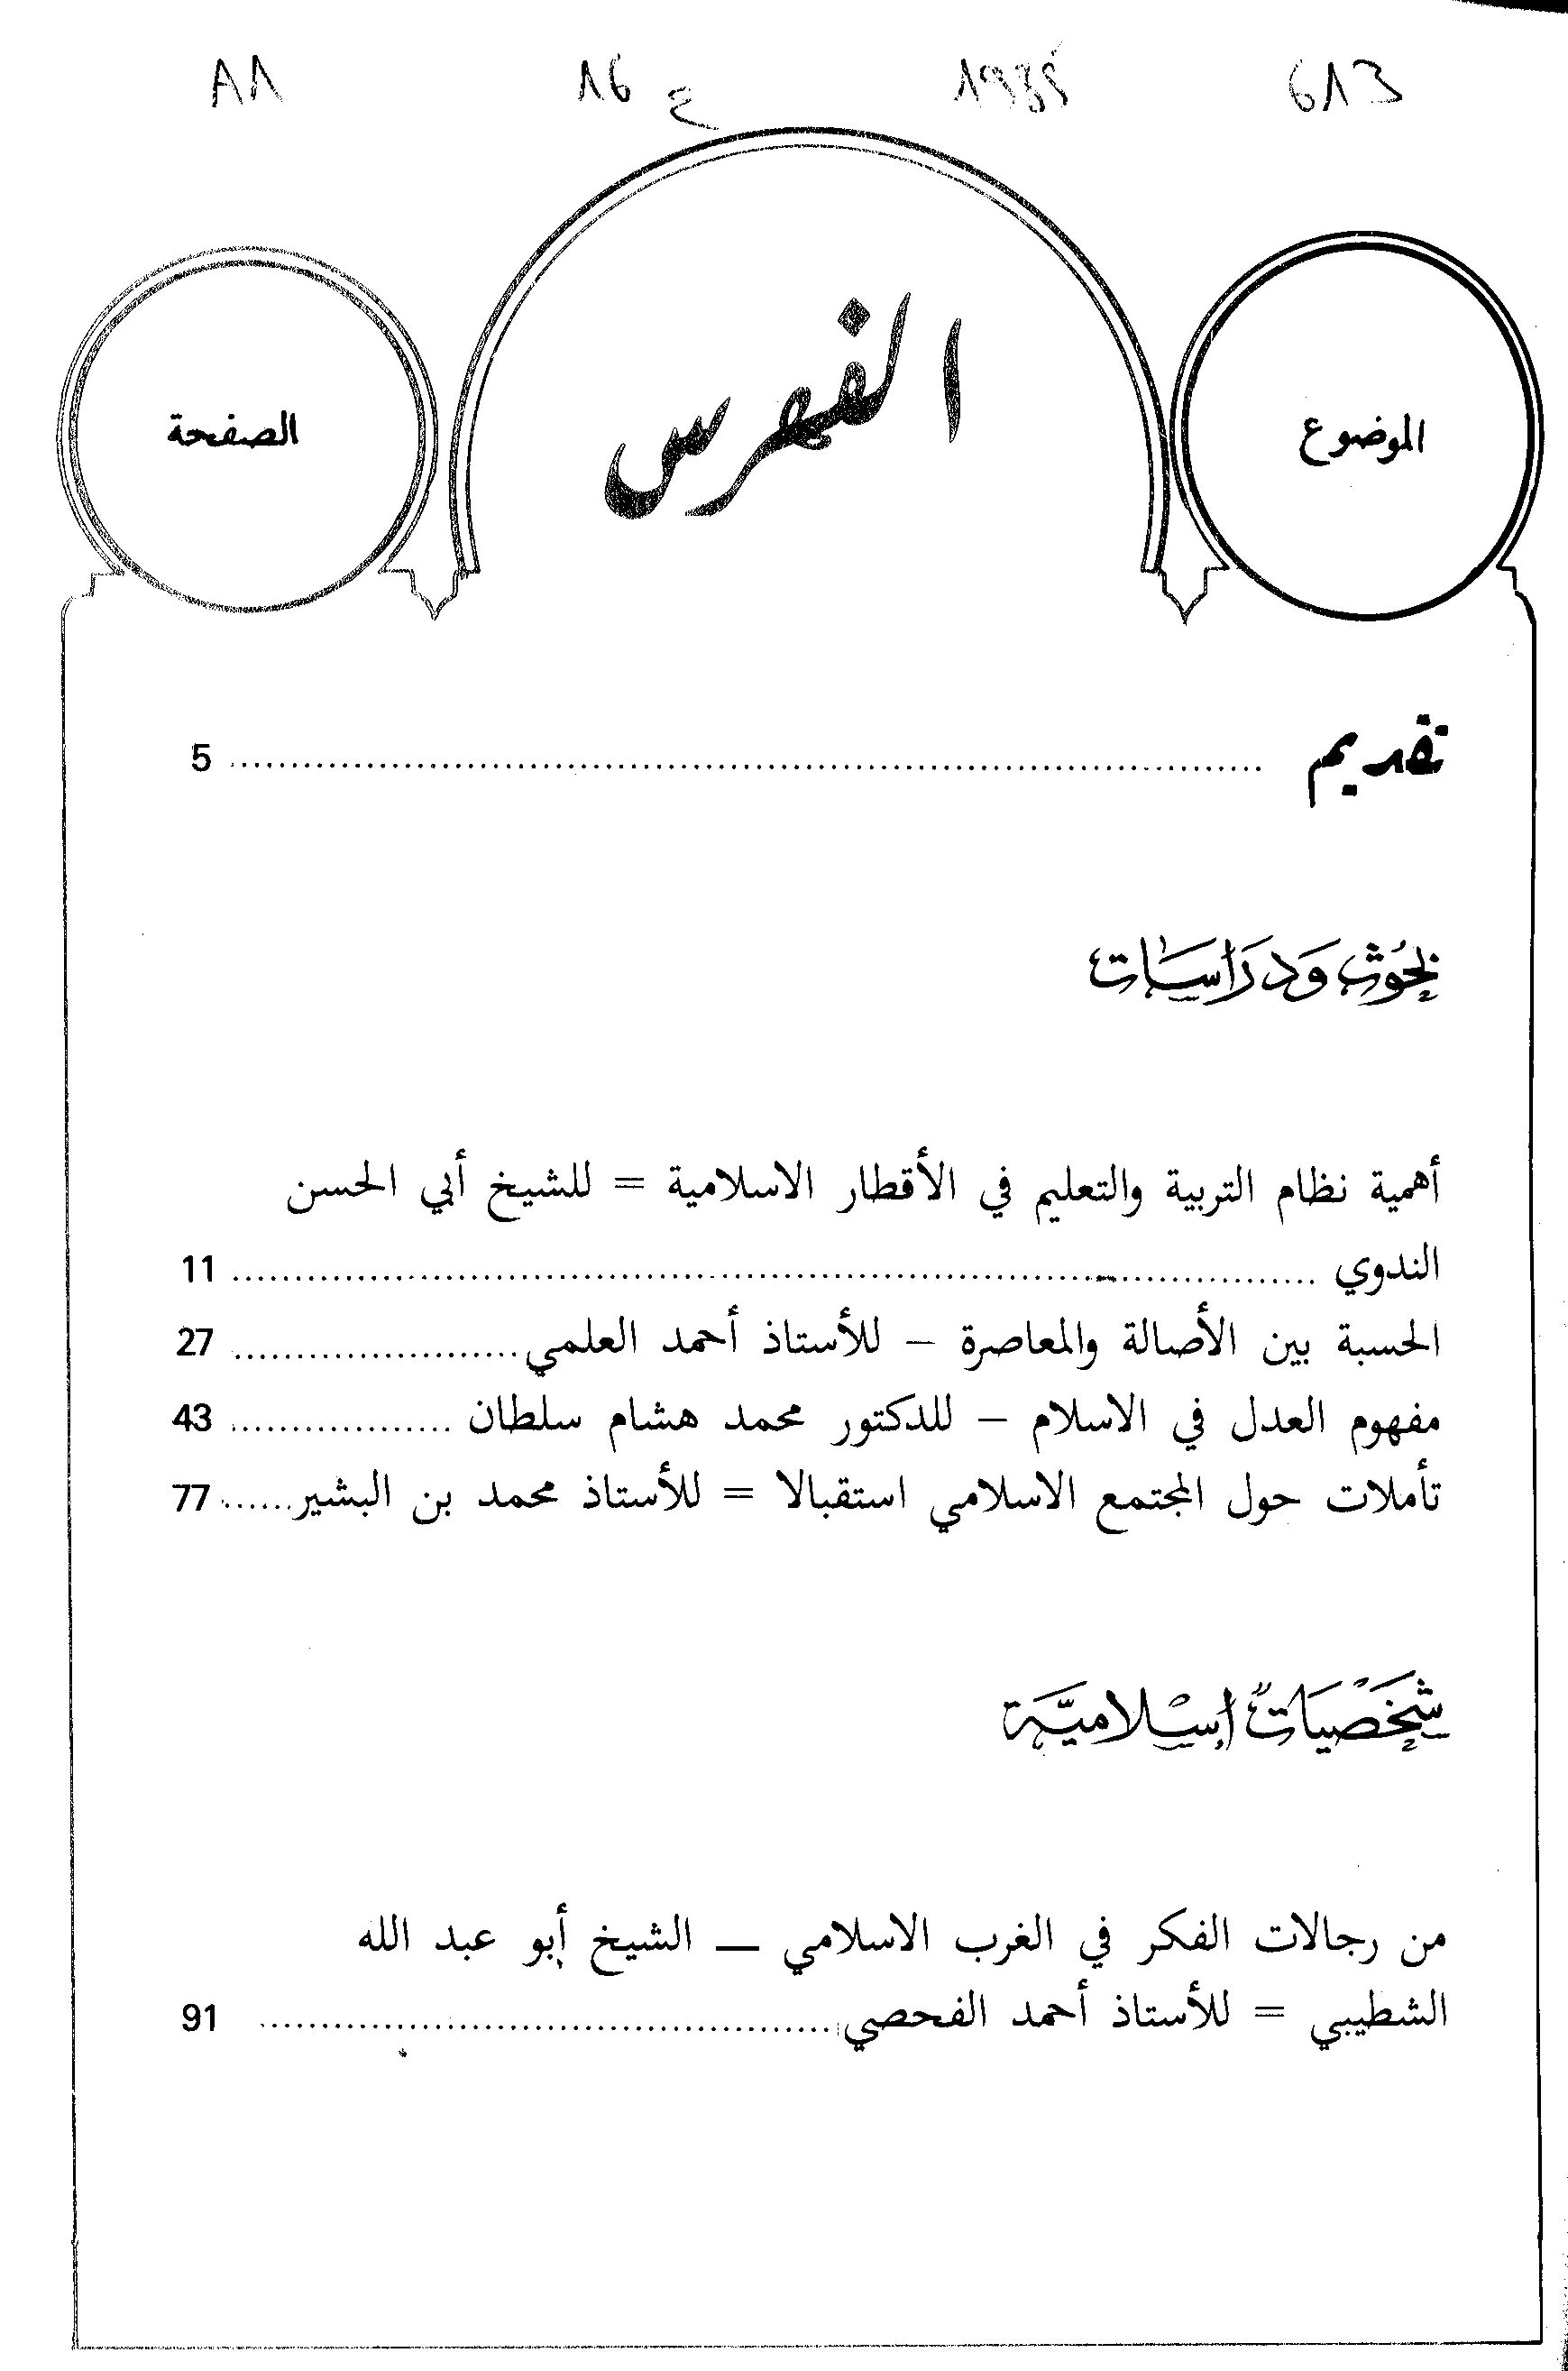 613 1985 ع 16 A1
الموضوع
الفهرس
الصفحة
تقديم ........ 5
بحُوث وَدرَاسَات
أهمية نظام التربية والتعليم في الأقطار الاسلامية = للشيخ أبي الحسن
الندوي ........ 11
الحسبة بين الأصالة والمعاصرة – للأستاذ أحمد العلمي ........ 27
مفهوم العدل في الاسلام – للدكتور محمد هشام سلطان ........ 43
تأملات حول المجتمع الاسلامي استقبالا = للأستاذ محمد بن البشير ...... 77
شَخْصيَاتٌ إسْلاميَّة
من رجالات الفكر في الغرب الاسلامي — الشيخ أبو عبد الله
الشطيبي = للأستاذ أحمد الفحصي ........ 91